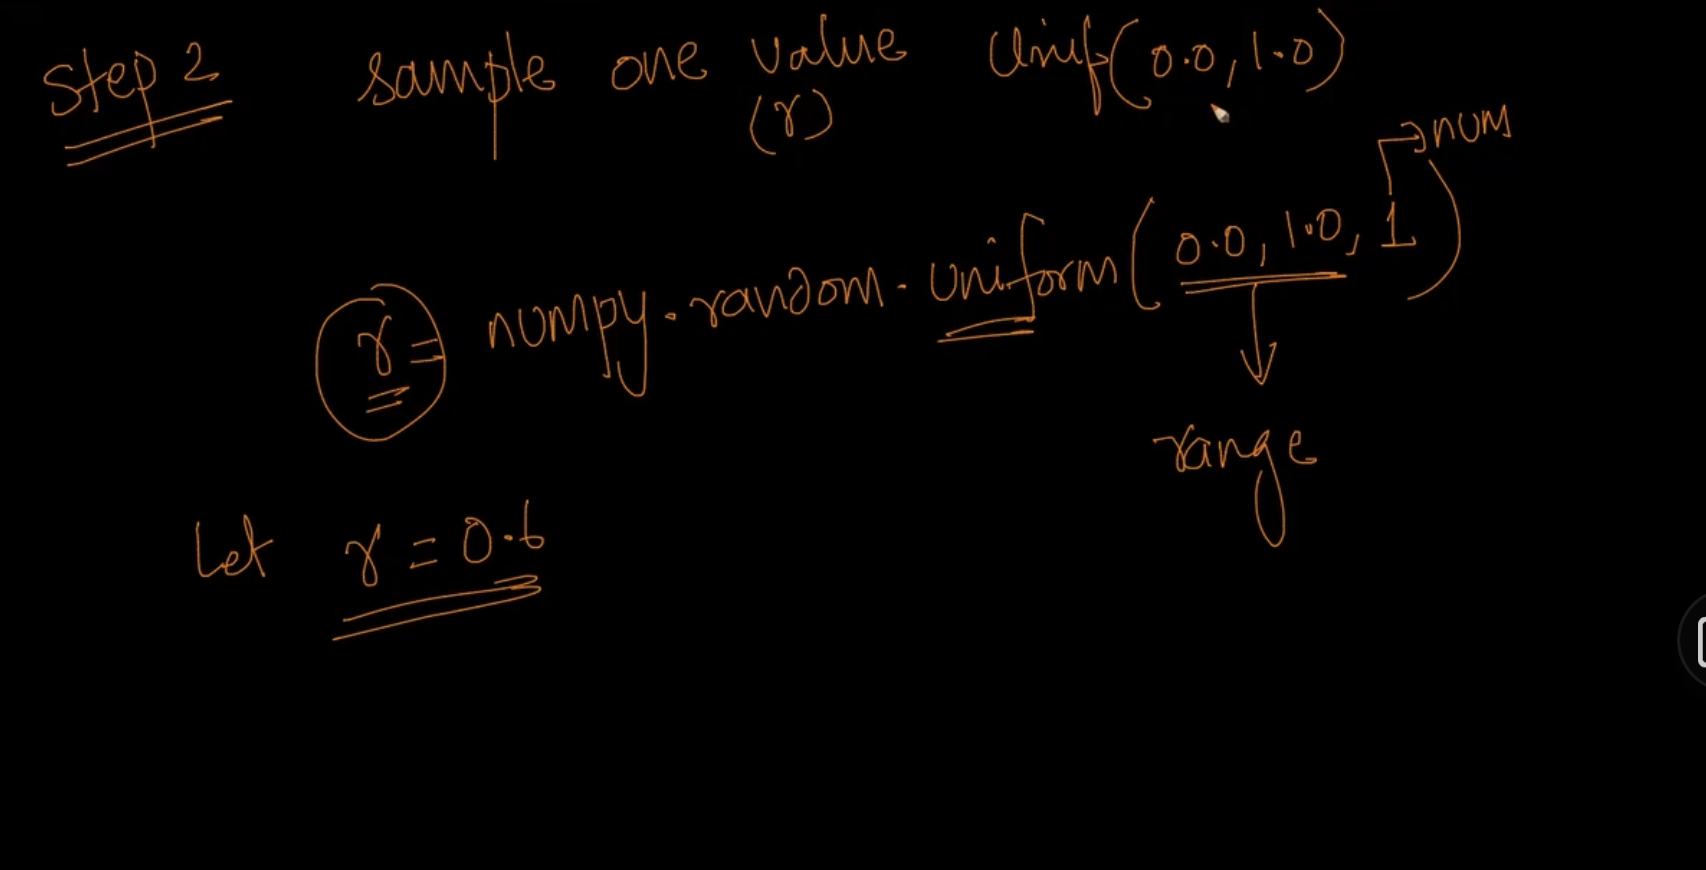 Step 2 sample one value Unif(0.0, 1.0)
(r)
num
r = numpy.random.uniform(0.0, 1.0, 1)
range
Let r = 0.6